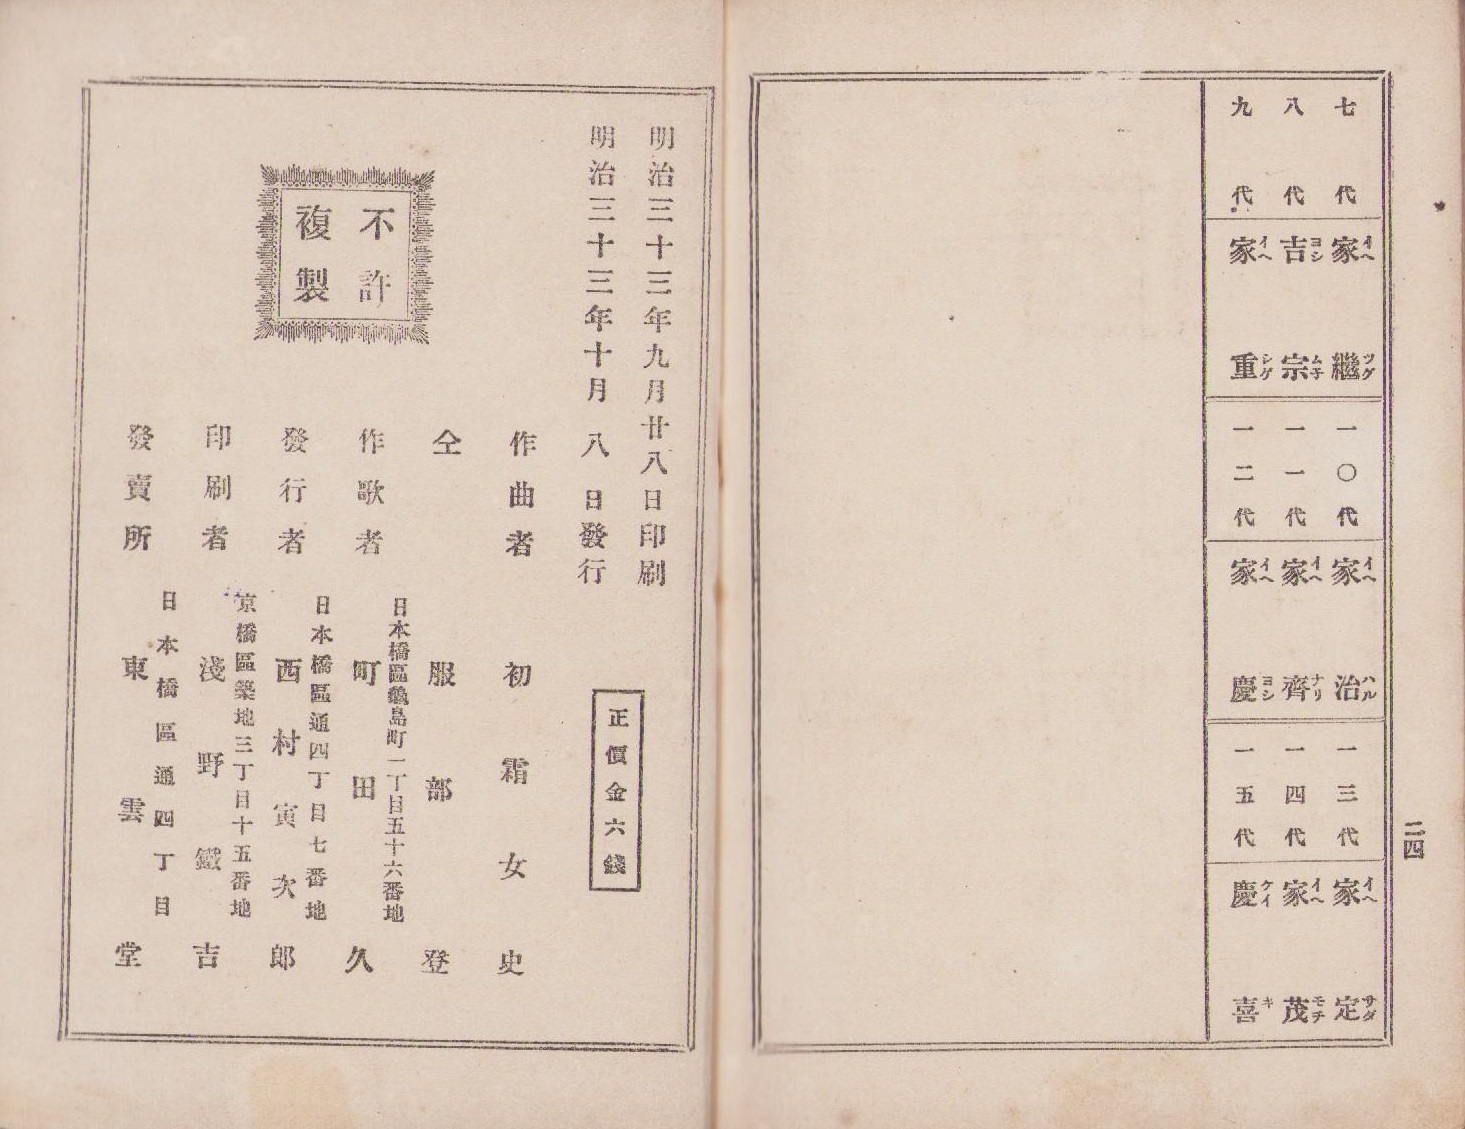 七代 家繼 イヘツグ
八代 吉宗 ヨシム子
九代 家重 イヘシゲ
一〇代 家治 イヘハル
一一代 家齊 イヘナリ
一二代 家慶 イヘヨシ
一三代 家定 イヘサダ
一四代 家茂 イヘモチ
一五代 慶喜 ケイキ
二四
明治三十三年九月廿八日印刷
明治三十三年十月八日發行
正價金六錢
不許
複製
作曲者 初霜女史
仝 服部登
日本橋區龜島町一丁目五十六番地
作歌者 町田久
日本橋區通四丁目七番地
發行者 西村寅次郎
京橋區築地三丁目十五番地
印刷者 淺野鐵吉
日本橋區通四丁目
發賣所 東雲堂